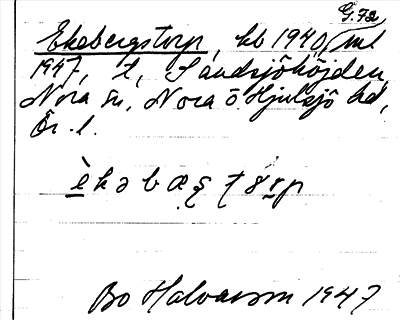 G. 72
Ekebergstorp, kb 1940, ml
1947, t, Sandsjöhöjden,
Nora sn, Nora o Hjulsjö hd,
Ör. l.
èkəbæʂtərp
Bo Halvarson 1947